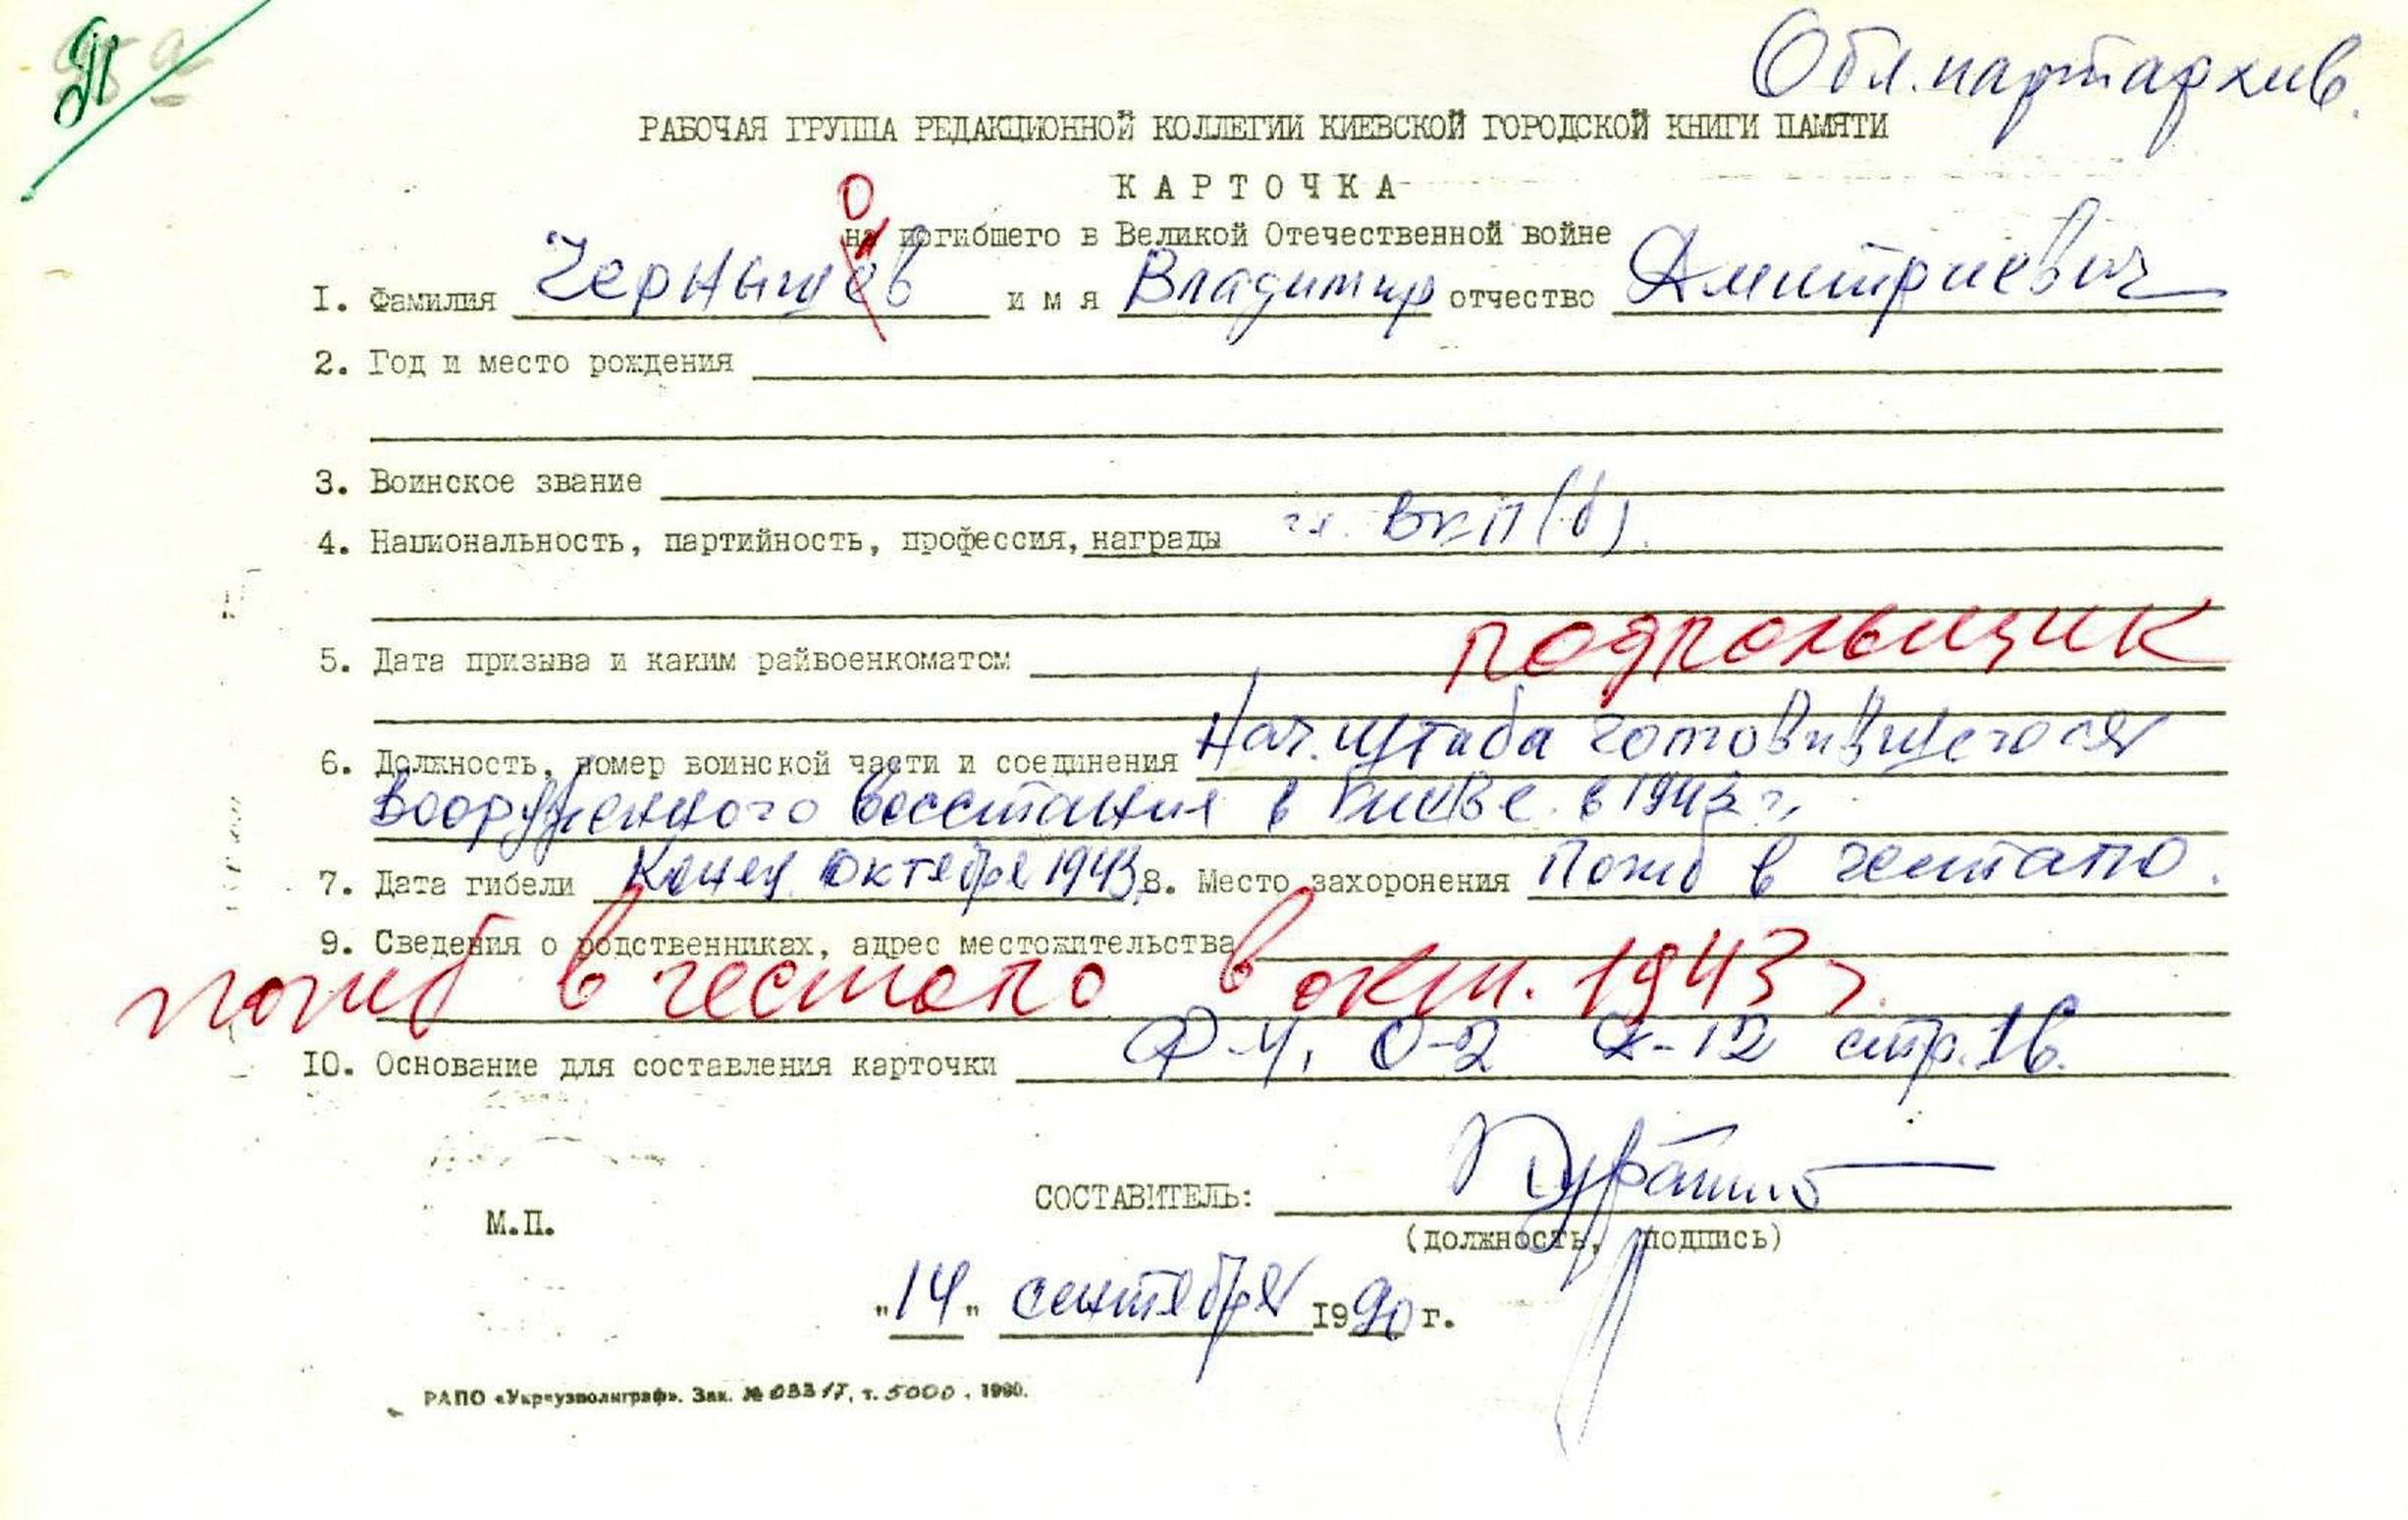 П
Обл. партархив.
РАБОЧАЯ ГРУППА РЕДАКЦИОННОЙ КОЛЛЕГИИ КИЕВСКОЙ ГОРОДСКОЙ КНИГИ ПАМЯТИ
КАРТОЧКА
о
на погибшего в Великой Отечественной войне
I. Фамилия Чернышев имя Владимир отчество Дмитриевич
2. Год и место рождения
3. Воинское звание
4. Национальность, партийность, профессия, награды чл. ВКП(б).
подпольщик
5. Дата призыва и каким райвоенкоматом
6. Должность, номер воинской части и соединения Нач. штаба готовившегося
вооруженного восстания в Киеве в 1943 г.
7. Дата гибели Конец октября 1943 8. Место захоронения Погиб в гестапо.
9. Сведения о родственниках, адрес местожительства
погиб в гестапо в окт. 1943 г.
10. Основание для составления карточки Ф-4, О-2 Д-12 стр. 16.
СОСТАВИТЕЛЬ:
М.П.
(должность, подпись)
"14" сентября 1990 г.
РАПО «Укрвузполиграф». Зак. № 0331Т, т. 5000. 1990.